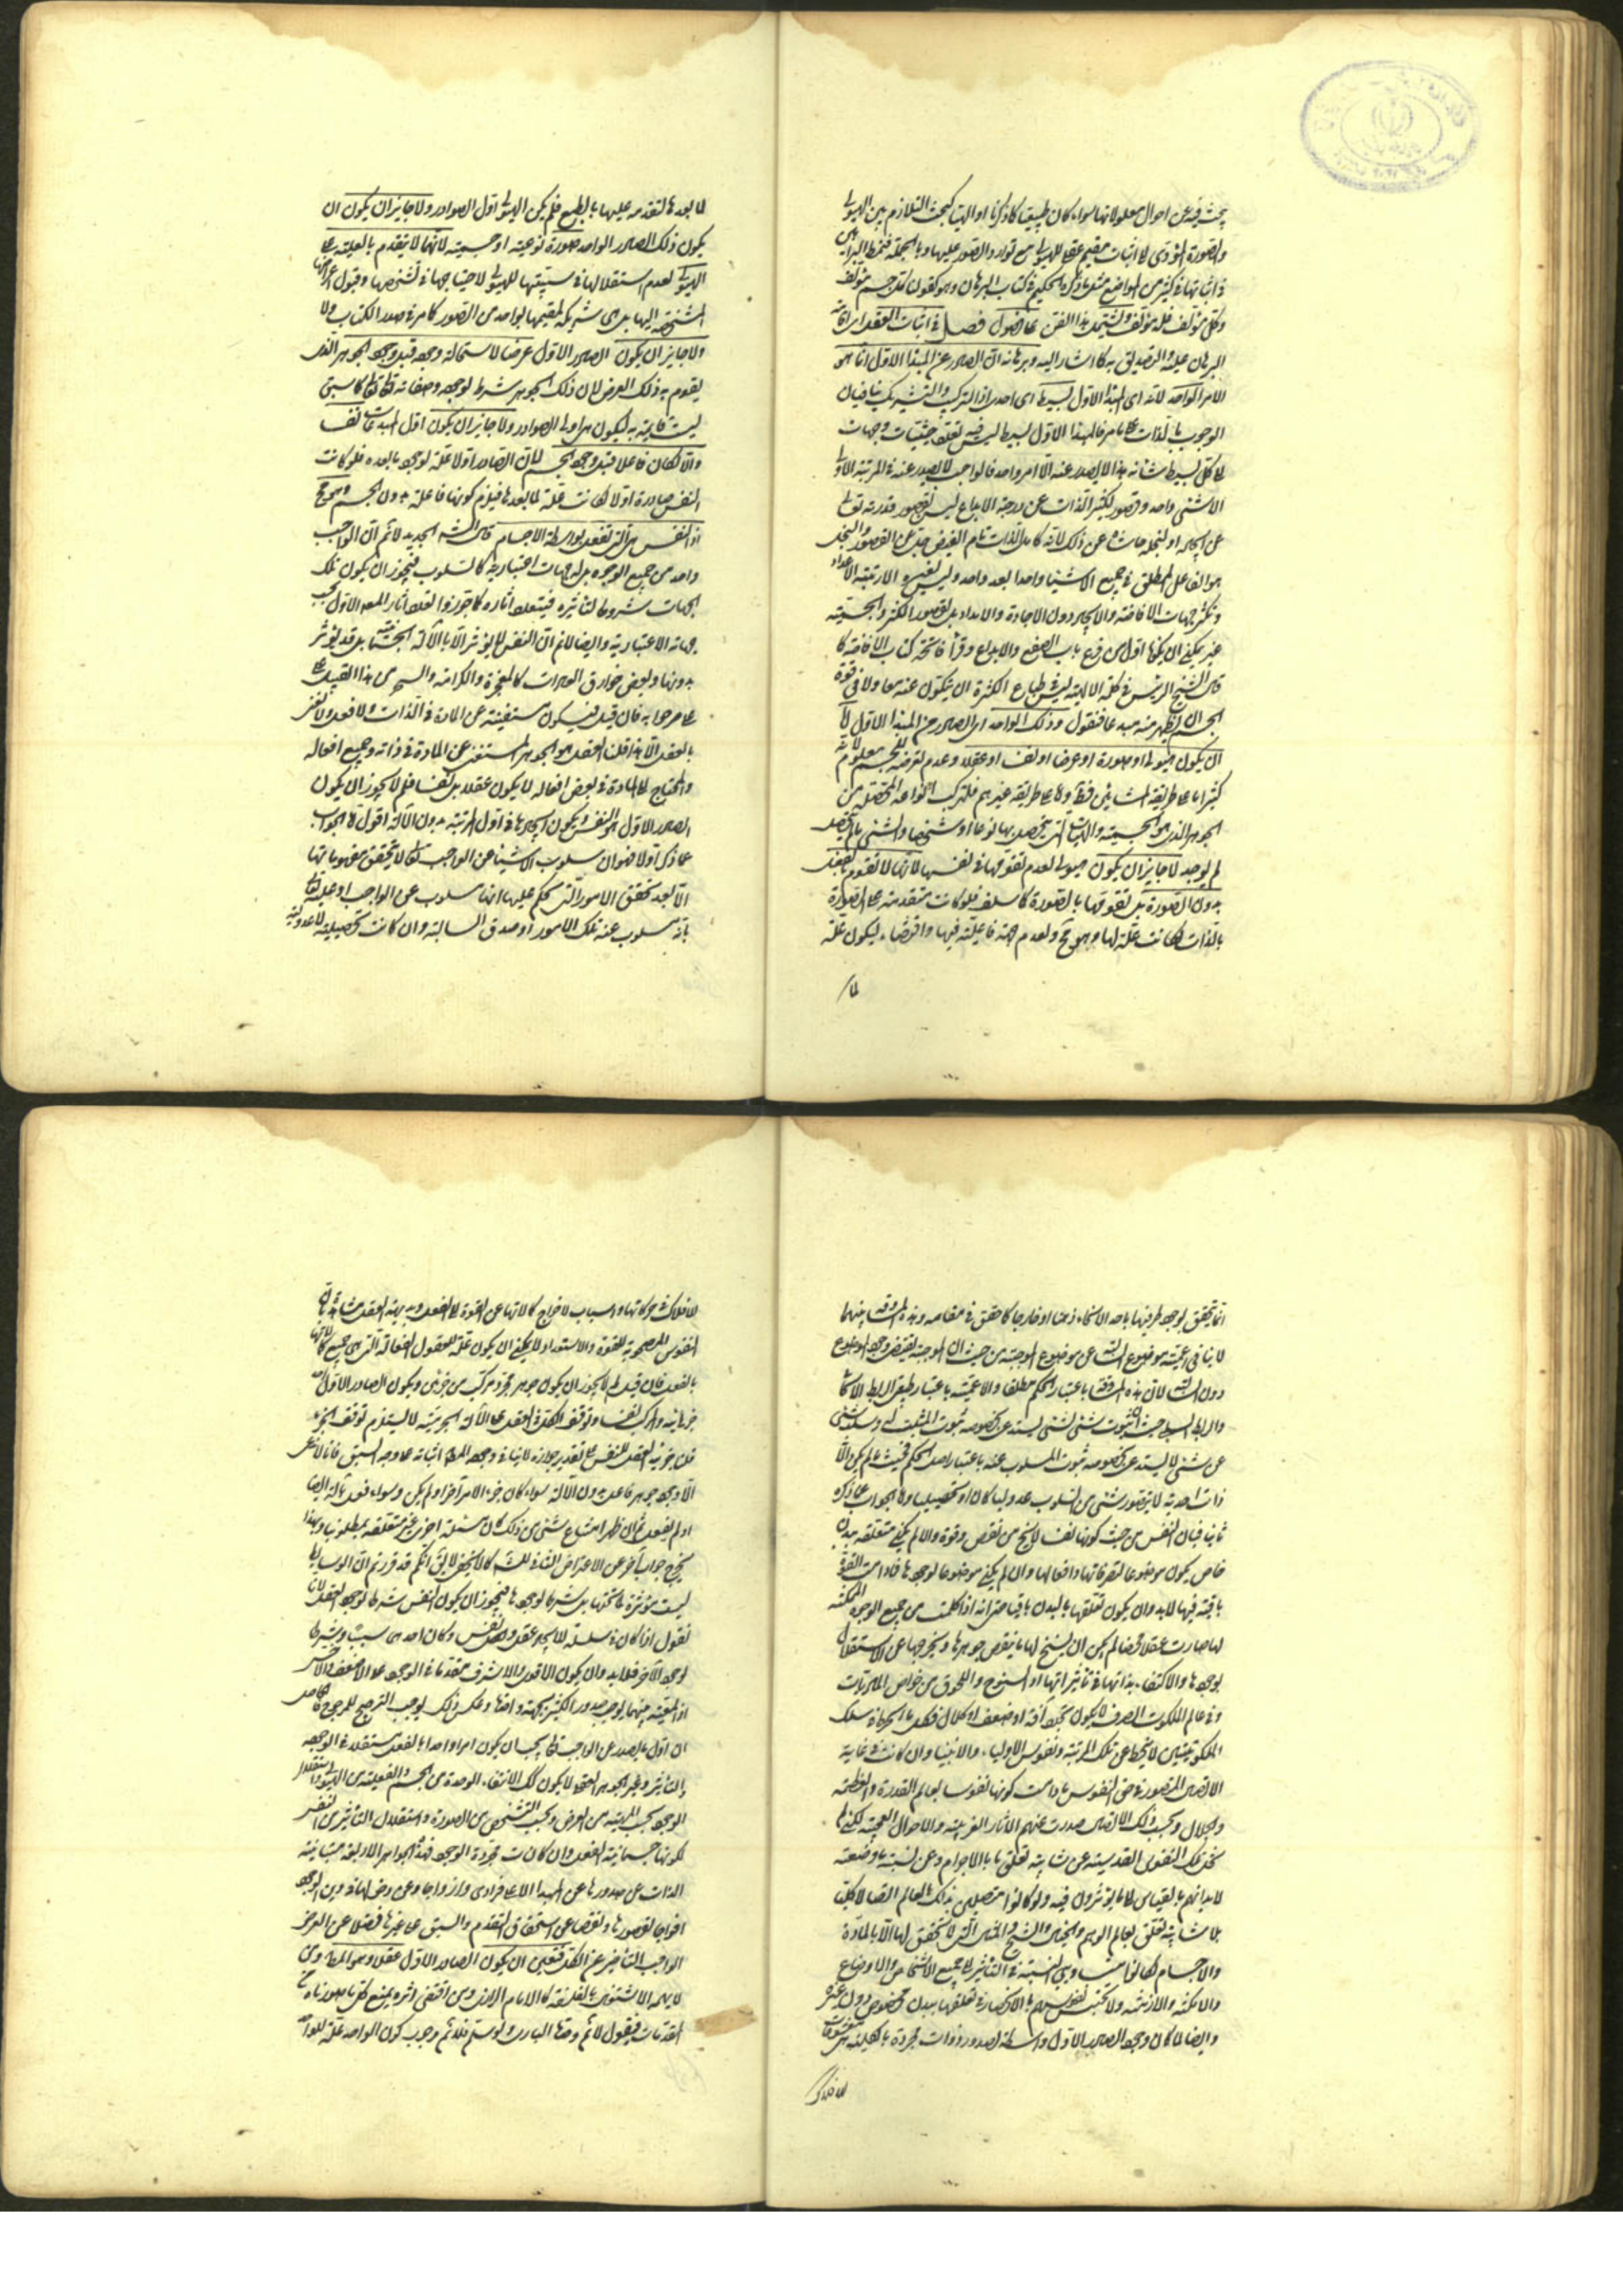 يبحث فيه عن احوال معلولاتها سواء كان طبيعيا كما ذكرنا او الهيا كبحث التلازم بين الهيولى
والصورة المؤدى الى اثبات مقيم عقلى للهيولى مع توارد الصور عليها وبالجملة فنمط البراهين
فى كثير من المواضع مثل ما ذكره الحكيم فى كتاب البرهان وهو كقولنا كل جسم مؤلف
وكل مؤلف فله مؤلف ويشتمل هذا الفن على فصول فصل فى اثبات العقل اى اقامة
البرهان عليه والتصديق به كما اشار اليه وبرهانه ان الصادر عن المبدأ الاول انما هو
الامر الواحد لانه اى المبدأ الاول بسيط اى احدى اذ التركيب والتشريك ينافيان
الوجوب بالذات على ما مر فالمبدأ الاول بسيط ليس فيه تعلق حيثيات وجهات
وكل بسيط شانه هذا لا يصدر عنه الا امر واحد فالواجب لا يصدر عنه فى المرتبة الاولى
الا شىء واحد وقصور لكثير الذات عن درجة الابداع ليس لقصور قدرته تعالى
عن ايجاده او لبخله حاشاه عن ذلك لانه كامل الذات تام الفيض برىء عن القصور والبخل
هو الفاعل المطلق فى جميع الاشياء واحدا بعد واحد وليس لغيره الا رتبة الاعداد
وتكثر جهات الافاضة والايجاد دون الافادة والامداد بل لقصور الكثرة والجسمية
غير ممكن ان يكونا اول من قرع باب الصنع والابداع وقرأ فاتحة كتاب الافاضة كما
قال الشيخ الرئيس فى كلمة الالهية ليس فى طباع الكثرة ان يتكون عنه معا ولا فى قوة
الجسم ان يظهر منه مبدعا فنقول وذلك الواحد اى الصادر من المبدأ الاول لا
ان يكون هيولى او صورة او عرضا او نفسا او عقلا وعدم تعرضه للجسم معلوم لانه
كثير اما على طريقة المشائين فظاهر واما على طريقة غيرهم فلتركب انواعه المحصلة من
الجوهر الذى هو الجسمية والهيئات التى يتحصل بها نوعا او شخصا والشىء ما لم يتحصل
لم يوجد لا جائز ان يكون هيولى لعدم تقومها فى نفسها لانها لا تقوم بالفعل
بدون الصورة بل تقومها بالصورة كما سلف فلو كانت متقدمة على الصورة
بالذات لكانت علة لها وهو مح ولعدم جهة فاعلية فيها واقتضاء ليكون علة
لما
لما بعدها لتقدمه عليها بالطبع فلم يكن الهيولى اول الصوادر ولا جائز ان يكون ان
يكون ذلك الصادر الواحد صورة نوعية او جسمية لانها لا يتقدم بالعلية على
الهيولى لعدم استقلالها فى سببيتها للهيولى لاحتياجها فى تشخصها وقبول اعراضها
المشخصة اليها بل هى شريكة لمقيمها بواحد من الصور كما مر فى صدر الكتاب ولا
ولا جائز ان يكون الصادر الاول عرضا لاستحالة وجوده قبل وجود الجوهر الذى
يقوم به ذلك العرض لان ذلك الجوهر شرط لوجوده وصفاته تعالى كما سبق
ليست قائمة به ليكون هى اول الصوادر ولا جائز ان يكون اول المبدعات نفسا
والا لكان فاعلا قبل وجود الجسم لان الصادر اولا علة لوجود ما بعده فلو كانت
النفس صادرة اولا لكانت علة لما بعدها فيلزم كونها فاعلة بدون الجسم وهو مح
اذ النفس هى التى تفعل بواسطة الاجسام قال الشه الجديد لا نم ان الواجب
واحد من جميع الوجوه بل له جهات اعتبارية كالسلوب فيجوز ان يكون تلك
الجهات شروطا لتاثيره فيتعدد اثاره كما جوزوا تعدد اثار المعلول الاول بحسب
جهاته الاعتبارية وايضا لا نم ان النفس لا يؤثر الا بالآلة الجسمانية بل قد يؤثر
بدونها ولبعض خوارق العادات كالمعجزة والكرامة والسحر من هذا القبيل على
ما صرحوا به فان قيل فيكون مستغنية عن المادة فى الذات والفعل ولا نعنى
بالعقل الا هذا قلنا العقل هو الجوهر المستغنى عن المادة فى ذاته وجميع افعاله
والمحتاج الى المادة فى بعض افعاله لا يكون عقلا بل نفسا فلم لا يجوز ان يكون
الصادر الاول هو النفس ويكون ايجادها فى اول المرتبة بدون الآلة اقول اما الجواب
عما ذكره اولا فهو ان سلوب الاشياء عن الواجب تعالى لا يتحقق مفهوماتها
الا بعد تحقق الامور التى حكم عليها انها سلوب عن الواجب او عليه تعالى
بانه مسلوب عنه تلك الامور اذ صدق السالبة وان كانت تحصيلية لا عدولية
انما يتحقق لوجود طرفيها باحد الانحاء ذهنا او خارجا كما حقق فى مقامه وهذه المساوقة بينهما
لا ينافى اعمية موضوع السالبة عن موضوع الموجبة من حيث ان الموجبة يقتضى وجود الموضوع
دون السالبة لان هذه المساوقة باعتبار الحكم مطلقا والاعمية باعتبار طبيعة الربط الايجابى
والربط السلبى حيث ان ثبوت شىء لشىء يستدعى بخصوصه ثبوت المثبت له وسلب شىء
عن شىء لا يستدعى بخصوصه ثبوت المسلوب عنه باعتبار اصل الحكم فحيث ما لم يكن الا
ذات احدية لا يتصور شىء من السلوب عدوليا كان او تحصيليا واما الجواب عما ذكره
ثانيا فبان النفس من حيث كونها نفسا لا يخ من نقص وقوة والا لم يكن متعلقة ببدن
خاص يكون موضوعا لتصرفاتها وافعالها وان لم يكن موضوعا لوجودها فما دامت القوة
باقية فيها لا بد وان يكون تعلقها بالبدن باقيا حتى انه اذا كملت من جميع الوجوه الممكنة
لها صارت عقلا محضا لم يمكن ان يسنخ لها ما ينقص جوهرها ويخرجها عن الاستقلال
لوجودها والاكتفاء بذاتها فى تأثيراتها اذ السنوح واللحوق من خواص الماديات
وفى عالم الملكوت الصرف لا يكون تجدد آفة او ضعف او كلال فكل ما انخرط فى سلك
الملكوتيين لا ينحط عن تلك المرتبة ونفوس الاولياء والانبياء وان كانت فى غاية
الاتصال المتصور فى حق النفوس ما دامت كونها نفوسا بعالم القدرة والعظمة
والجلال وبحسب ذلك الاتصال صدرت عنهم الآثار الغريبة والاحوال العجيبة لكن لم
تخل تلك النفوس القدسية عن شائبة تعلق ما بالاجرام وعن نسبة ما وضعية
لابدانهم بالقياس الى ما يؤثرون فيه ولو كانوا متصلين بذلك العالم اتصالا كليا
بلا شائبة تعلق بعالم الوهم والخيال والشبح والمثال التى لا يتحقق لها الا بالمادة
والاجسام لكانوا متساوى النسبة فى التأثير الى جميع الاشخاص والاوضاع
والامكنة والازمنة ولا كتب نفوسهم بالانحصار فى تعلقها ببدن مخصوص دون غيره
وايضا لما كان وجود الصادر الاول واسطة لصدور ذوات مجردة بالكلية هى معشوقات
للافلاك
للافلاك فى حركاتها واسباب لاخراج كمالاتها عن القوة الى الفعل وبديهة العقل شاهدة بان
النفوس المصحوبة للقوة والاستعداد لا يمكن ان يكون علة للعقول الفعالة التى هى جميع كمالاتها
بالفعل فان قيل لم لا يجوز ان يكون جوهر مجرد مركب من جزئين ويكون الصادر الاول احد
جزئيه والمركب نفسا وتوقف الكل فى الفعل على الآلة الجرمية لا يستلزم توقف الجزء
قلنا جزئية العقل للنفس على تقدير جوازه لا ينافى وجود المط اثباته على وجه السبق فانا لا نعنى
الا وجود جوهر فاعل بدون الآلة سواء كان جزء الامر آخر او لم يكن وسواء فعل بآلة ايضا
او لم يفعل ثم ان ظهر امتناع شىء من ذلك كان مسئلة اخرى غير متعلقة بمطلوبنا وبهذا
يخرج جوابا آخر عن الاعتراض الثانى للشه كما لا يخفى لا يق انكم قد قررتم ان الوسايط
ليست مؤثرة لما تحتها بل شرط لوجودها فيجوز ان يكون النفس شرطا لوجود العقل لانا
نقول اذا كان فى سلسلة الايجاد عقل ونفس وكان احدهما سببا وشرطا
لوجود الآخر فلا بد وان يكون الاقوى والاشرف متقدما فى الوجود على الاضعف والاخس
اذ المعية بينهما يوجب صدور الكثير بجهة واحدة وعكس ذلك يوجب الترجيح للمرجوح والحاصل
ان اول ما يصدر عن الواجب تعالى يجب ان يكون امرا واحدا بالفعل مستقلا فى الوجود
والتأثير وغير الجوهر العقلى لا يكون كك لانتفاء الوحدة من الجسم والفعلية من الهيولى واستقلال
الوجود بحسب المهية من العرض وبحسب التشخص من الصورة واستقلال التأثير من النفس
لكونها جسمانية الفعل وان كانت مجردة الوجود فهذه الجواهر الاربعة متباينة
الذات عن صدورها عن المبدأ الاعلى فرادى وازواجا وعن دخولها فى دين الوجود
افواجا لقصورها ونقصها عن استحقاق التقدم والسبق على غيرها فضلا عن العرض
الواجب التأخير عن الكل فتعين ان يكون الصادر الاول عقلا وهو المط ومن
لا يهمه الا تشنيع بالفلسفة كالامام الرازى ومن اقتفى اثره يمنع كل ما مهدناه من
المقدمات فيقول لا نم وحدة البارى ولو سلم فلا نم وجوب كون الواحد علة للواحد